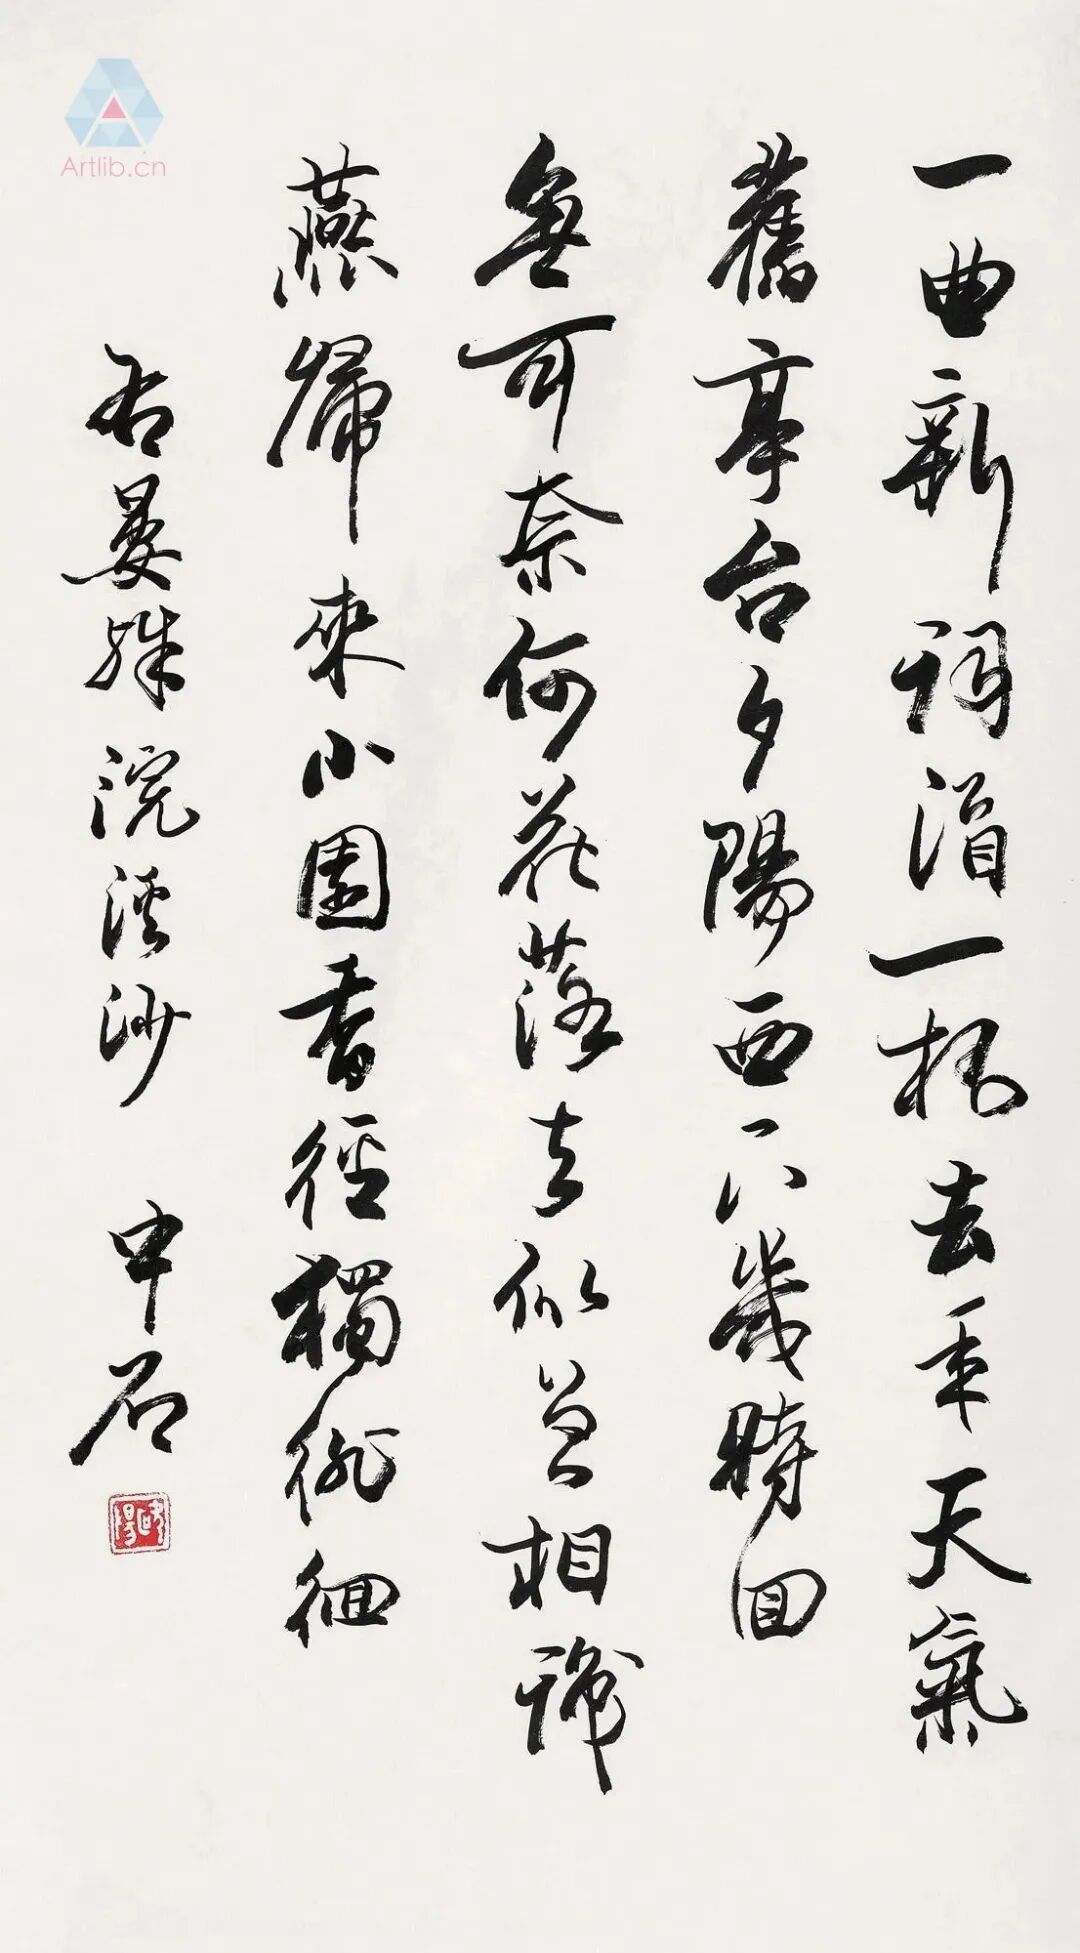 Artlib.cn
一曲新詞酒一杯去年天氣
舊亭台夕陽西下幾時回
無可奈何花落去似曾相識
燕歸來小園香徑獨徘徊
右晏殊浣溪沙 中石